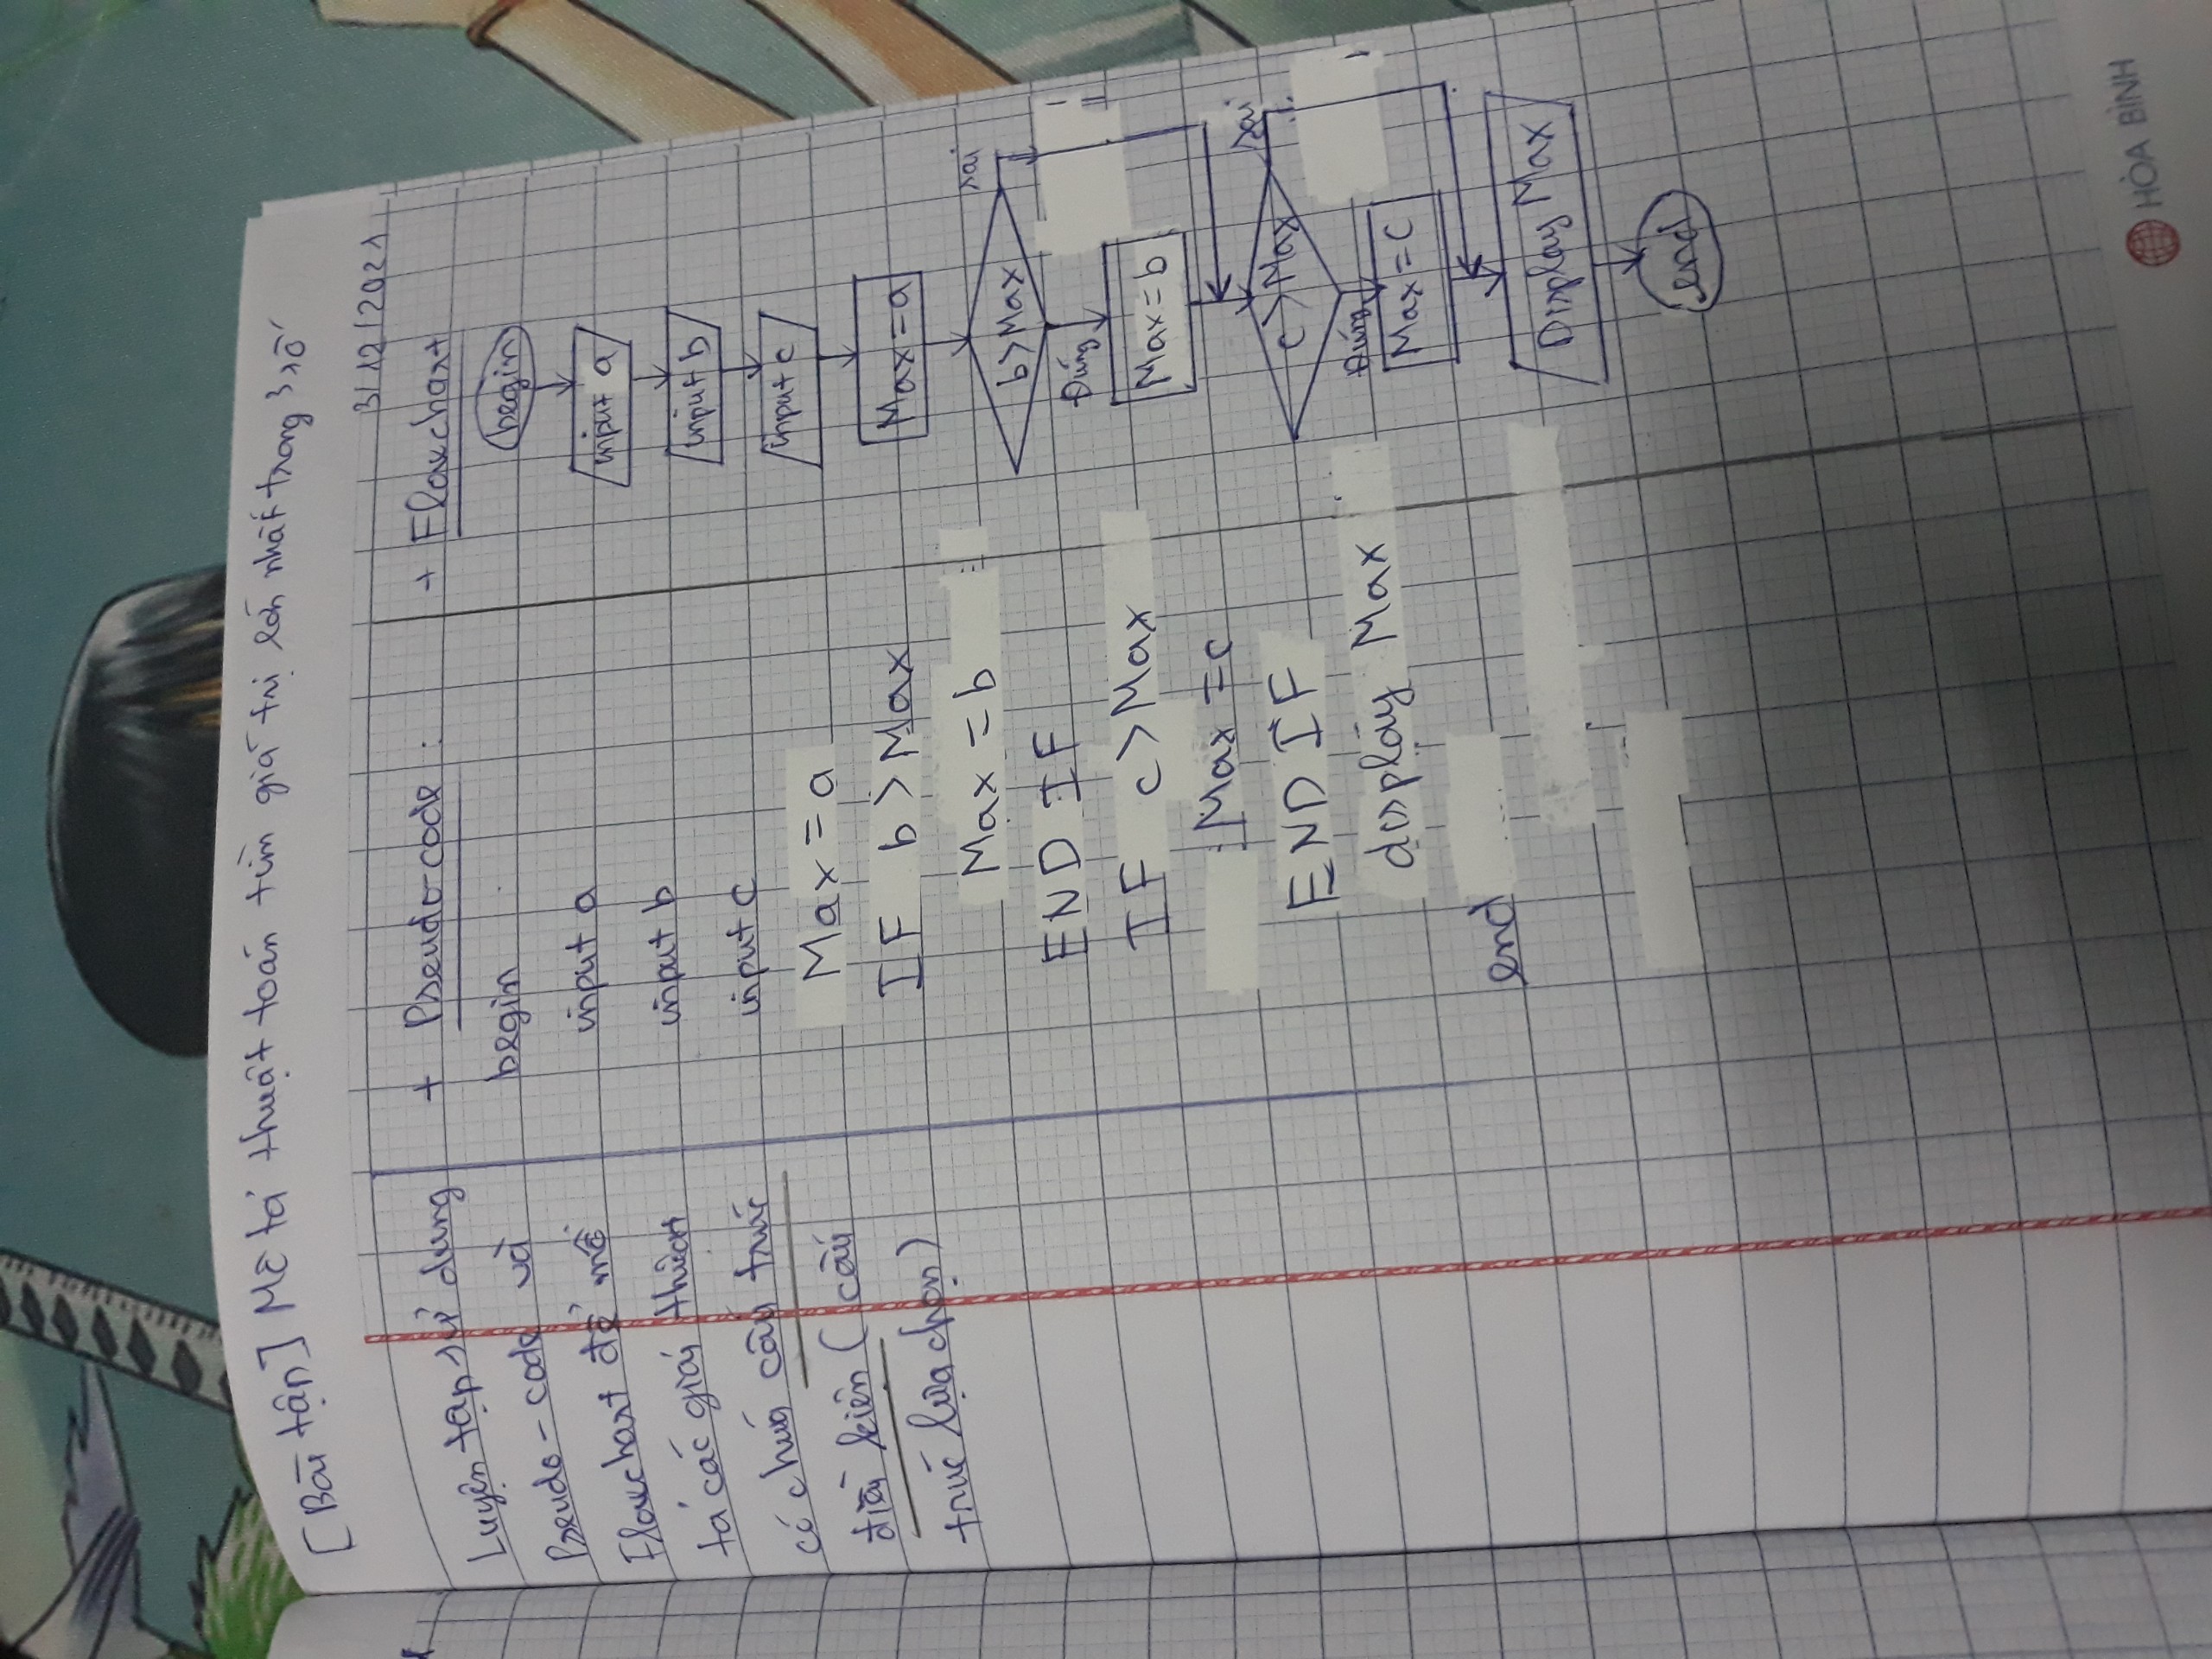 [Bài tập] Mô tả thuật toán tìm giá trị lớn nhất trong 3 số
3/12/2021
Luyện tập sử dụng
Pseudo-code và
Flowchart để mô
tả các giải thuật
có chứa cấu trúc
điều kiện (cấu
trúc lựa chọn)
+ Pseudo-code:
begin
input a
input b
input c
Max = a
IF b > Max
Max = b
END IF
IF c > Max
Max = c
END IF
display Max
end
+ Flowchart
begin
input a
input b
input c
Max = a
b > Max
sai
Đúng
Max = b
c > Max
sai
Đúng
Max = c
Display Max
end
HÒA BÌNH